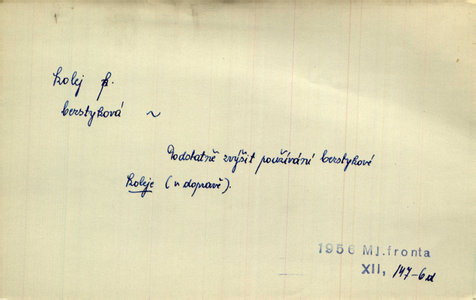 kolej f.
berstyková ~
Podstatně zvýšit používání berstykové
koleje (v dopravě).
1956 Ml.fronta
XII, 147-6d